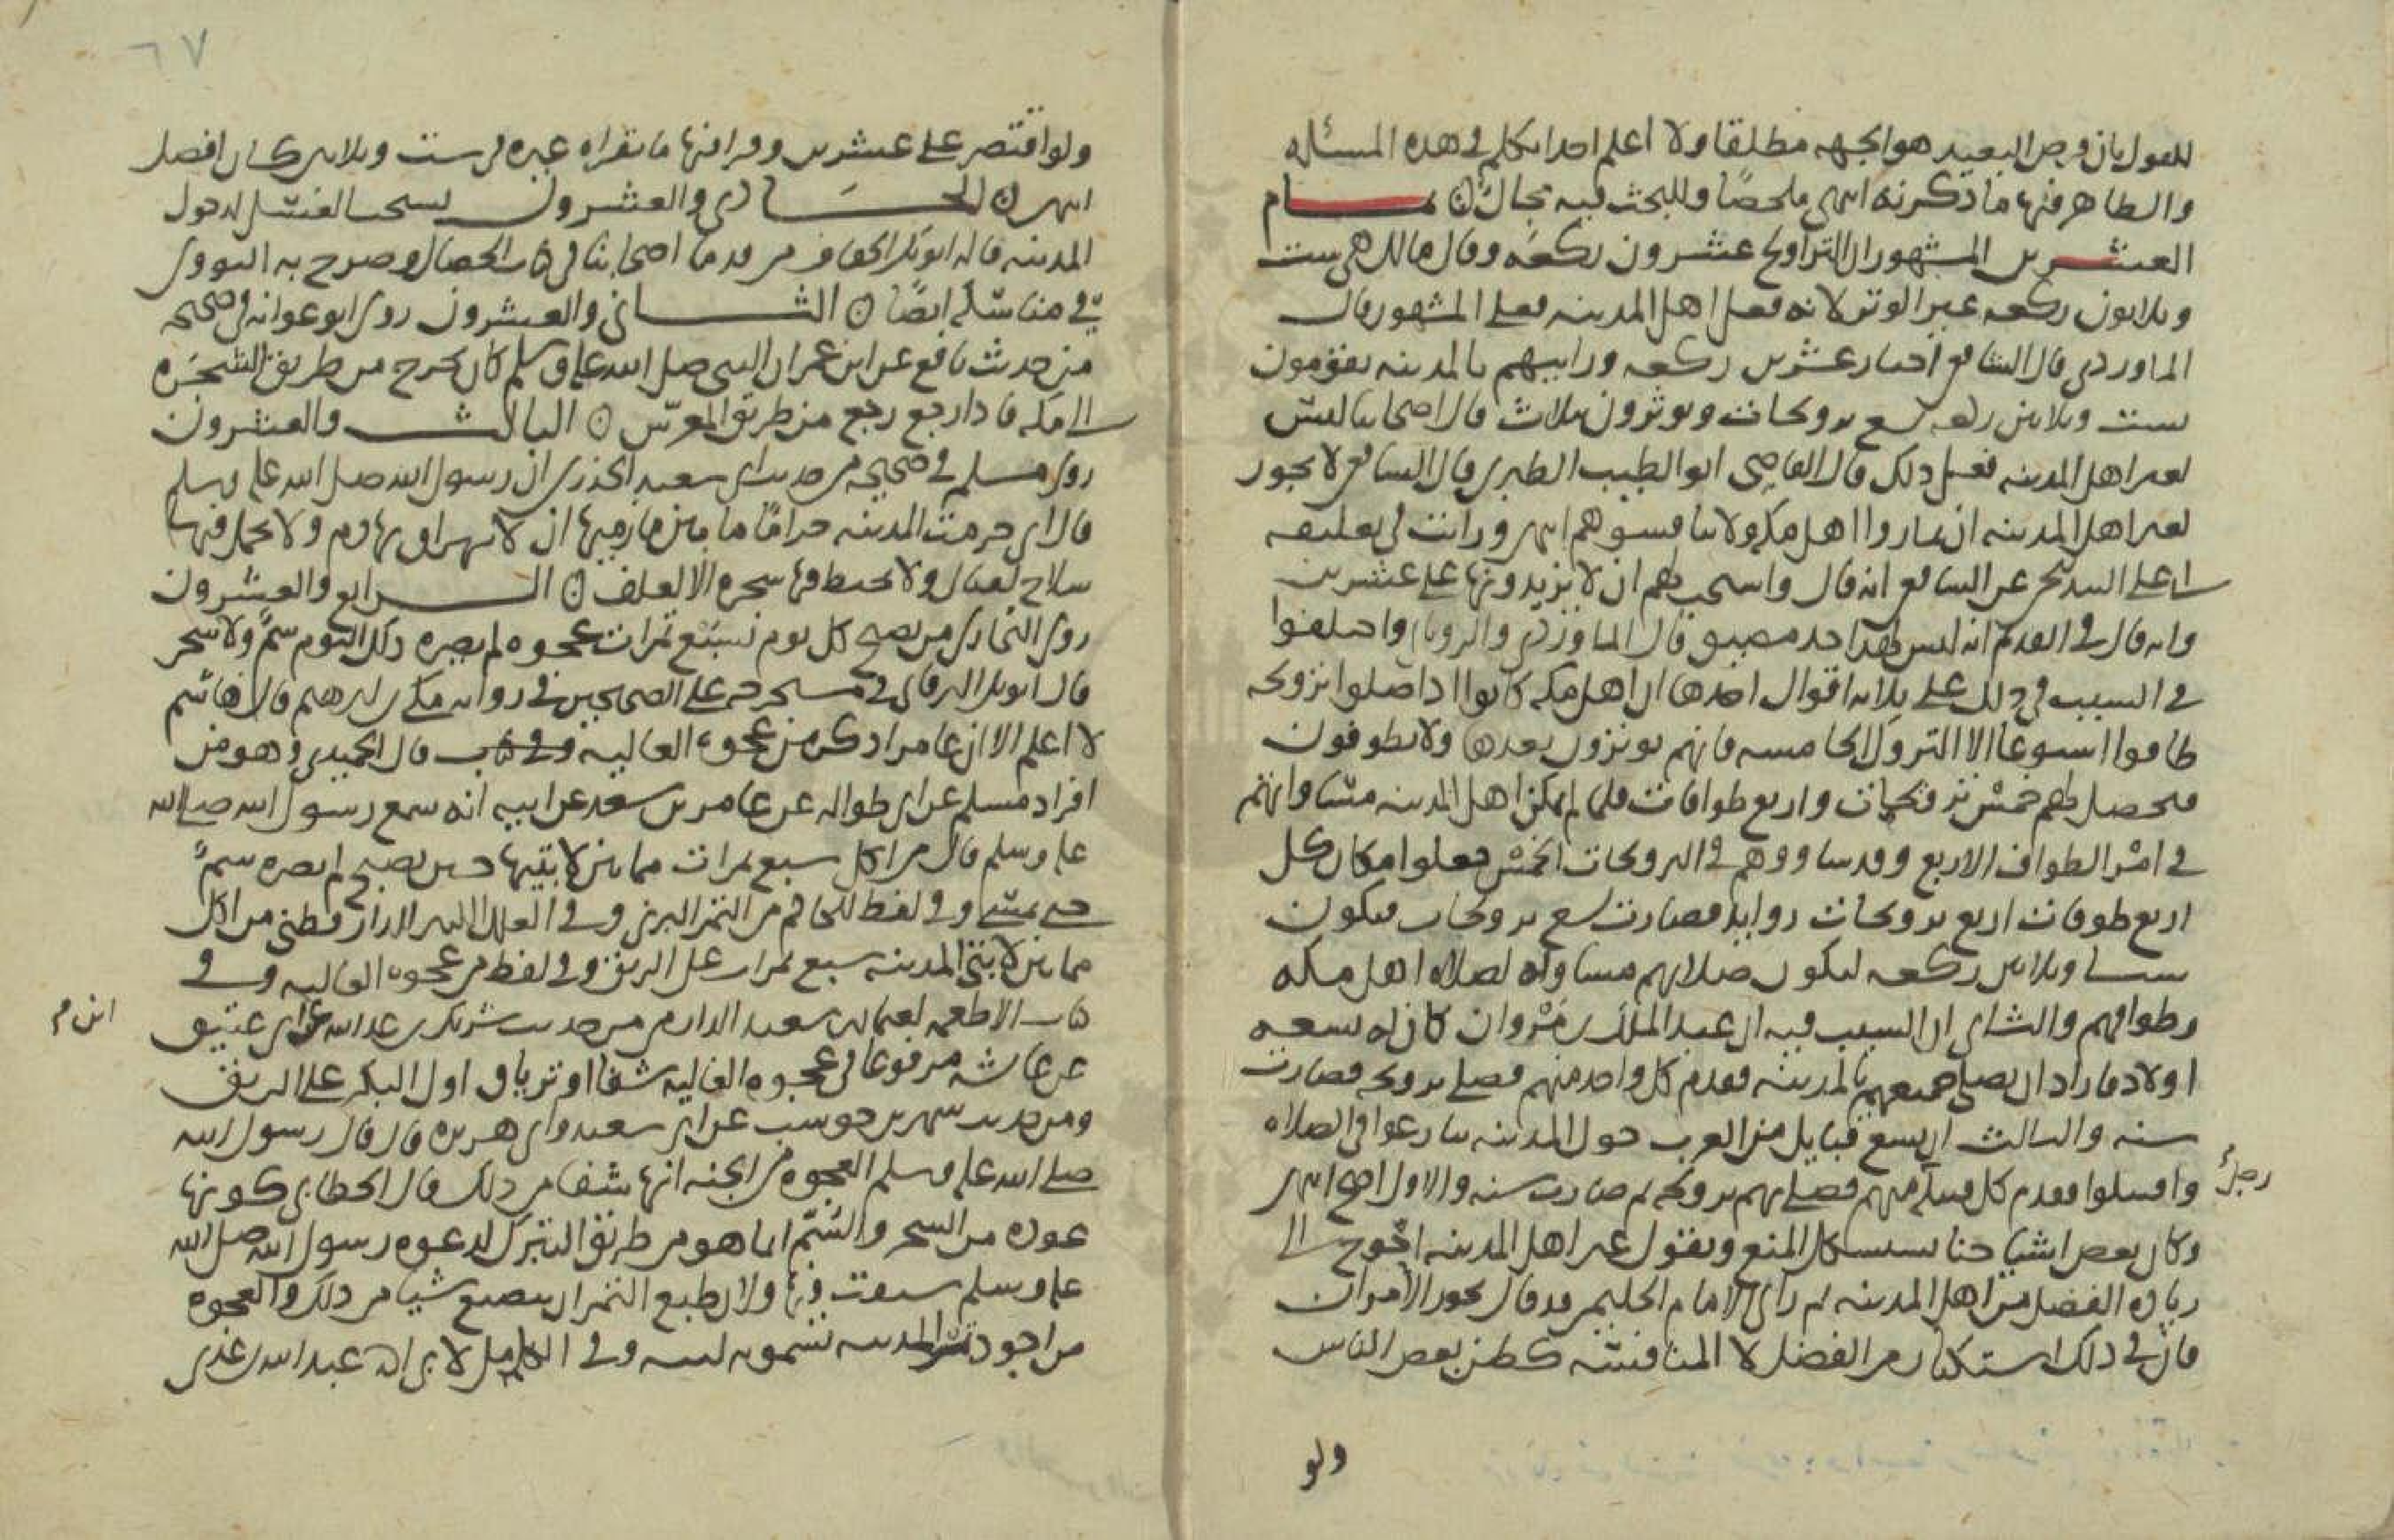 للقول بان فرض البعيد هو الجهه مطلقا ولا اعلم احدا تكلم في هذه المسئله
والظاهر فيها ما ذكرته انتهى ملخصًا وللبحث فيه مجال تمام
العشرين المشهور ان التراويح عشرون ركعه وقال مالك هي ست
وثلاثون ركعه غير الوتر لانه فعل اهل المدينه فعلى المشهور قال
الماوردي قال الشافعي اختار عشرين ركعه ورايتهم بالمدينه يقومون
ست وثلاثين ركعه تسع ترويحات ويوترون بثلاث قال اصحابنا ليس
لغير اهل المدينه فعل ذلك قال القاضي ابو الطيب الطبري قال الشافعي لا يجوز
لغير اهل المدينه ان يماروا اهل مكه ولا ينافسوهم انتهى ورايت في تعليقه
ابي علي البندنيجي عن الشافعي انه قال واستحب لهم ان لا يزيدونها على عشرين
وانه قال في القديم انه ليس لهذا حد مضيق قال الماوردي والروياني واختلفوا
في السبب في ذلك على ثلاثه اقوال احدها ان اهل مكه كانوا اذا صلوا ترويحه
طافوا اسبوعا الا الترويحه الخامسه فانهم يوترون بعدها ولا يطوفون
فتحصل لهم خمس ترويحات واربع طوافات فلما لم يمكن اهل المدينه مساواتهم
في امر الطواف الاربع وقد ساووهم في الترويحات الخمس جعلوا مكان كل
اربع طوفات اربع ترويحات زوايد فصارت تسع ترويحات فيكون
ستا وثلاثين ركعه لتكون صلاتهم مساواه لصلاه اهل مكه
وطوافهم والثاني ان السبب فيه ان عبد الملك بن مروان كان له تسعه
اولاد فاراد ان يصلي جميعهم بالمدينه فقدم كل واحد منهم فصلى ترويحه فصارت
سنه والثالث ان تسع قبايل من العرب حول المدينه تنازعوا في الصلاه
واقتتلوا فقدم كل قبيله منهم رجلا فصلى بهم ترويحه ثم صارت سنه والاول اصح انتهى
وكان بعض اشياخنا يستشكل المنع ويقول غير اهل المدينه احوج الى
زياده الفضل من اهل المدينه ثم راى الامام الحليمي قد قال بجواز الامران
قال في ذلك استكثار من الفضل لا المنافسه كظن بعض الناس
ولو
٦٧
ولو اقتصر على عشرين وقرا فيها ما يقراه غيره في ست وثلاثين كان افضل
انتهى الحادي والعشرون يستحب الغسل لدخول
المدينه قاله ابو بكر الخفاف من قدما اصحابنا في كتاب الخصال وصرح به النووي
في مناسكه ايضًا الثاني والعشرون روى ابو عوانه في صحيحه
من حديث نافع عن ابن عمر ان النبي صلى الله عليه وسلم كان يخرج من طريق الشجره
الى مكه فاذا رجع رجع من طريق المعرس الثالث والعشرون
روى مسلم في صحيحه من حديث ابي سعيد الخدري ان رسول الله صلى الله عليه وسلم
قال اني حرمت المدينه حرامًا ما بين مازميها ان لا يهراق بها دم ولا يحمل فيها
سلاح لقتال ولا يخبط فيها شجره الا لعلف الرابع والعشرون
روى البخاري من تصبح كل يوم بسبع تمرات عجوه لم يضره ذلك اليوم سم ولا سحر
قال ابو بكر البرقاني في مستخرجه على الصحيحين في روايه مكي بن ابرهيم قال هاشم
لا اعلم الا ان عامرا ذكر من عجوه العاليه وفي كتاب قال الحميدي وهو من
افراد مسلم عن ابي طواله عن عامر بن سعد عن ابيه انه سمع رسول الله صلى الله
عليه وسلم قال من اكل سبع تمرات مما بين لابتيها حين يصبح لم يضره سم
حتى يمسي وفي لفظ للحاكم من التمر البرني وفي العلل للدارقطني من اكل
مما بين لابتي المدينه سبع تمرات على الريق وفي لفظ من عجوه العاليه وفي
كتاب الاطعمه لعثمان بن سعيد الدارمي من حديث شريك بن عبد الله عن ابن ابي عتيق
عن عائشه مرفوعا في عجوه العاليه شفا او ترياق اول البكره على الريق
ومن حديث شهر بن حوشب عن ابي سعيد وابي هريره قال قال رسول الله
صلى الله عليه وسلم العجوه من الجنه انها شفا من ذلك قال الخطابي كونها
عوذه من السحر والسم انما هو من طريق التبرك لدعوه رسول الله صلى الله
عليه وسلم سبقت فيها ولان طبع التمر ان يصنع شيا من ذلك والعجوه
من اجود تمر المدينه يسمونه لينه وفي الكامل لابي احمد عبد الله بن عدي